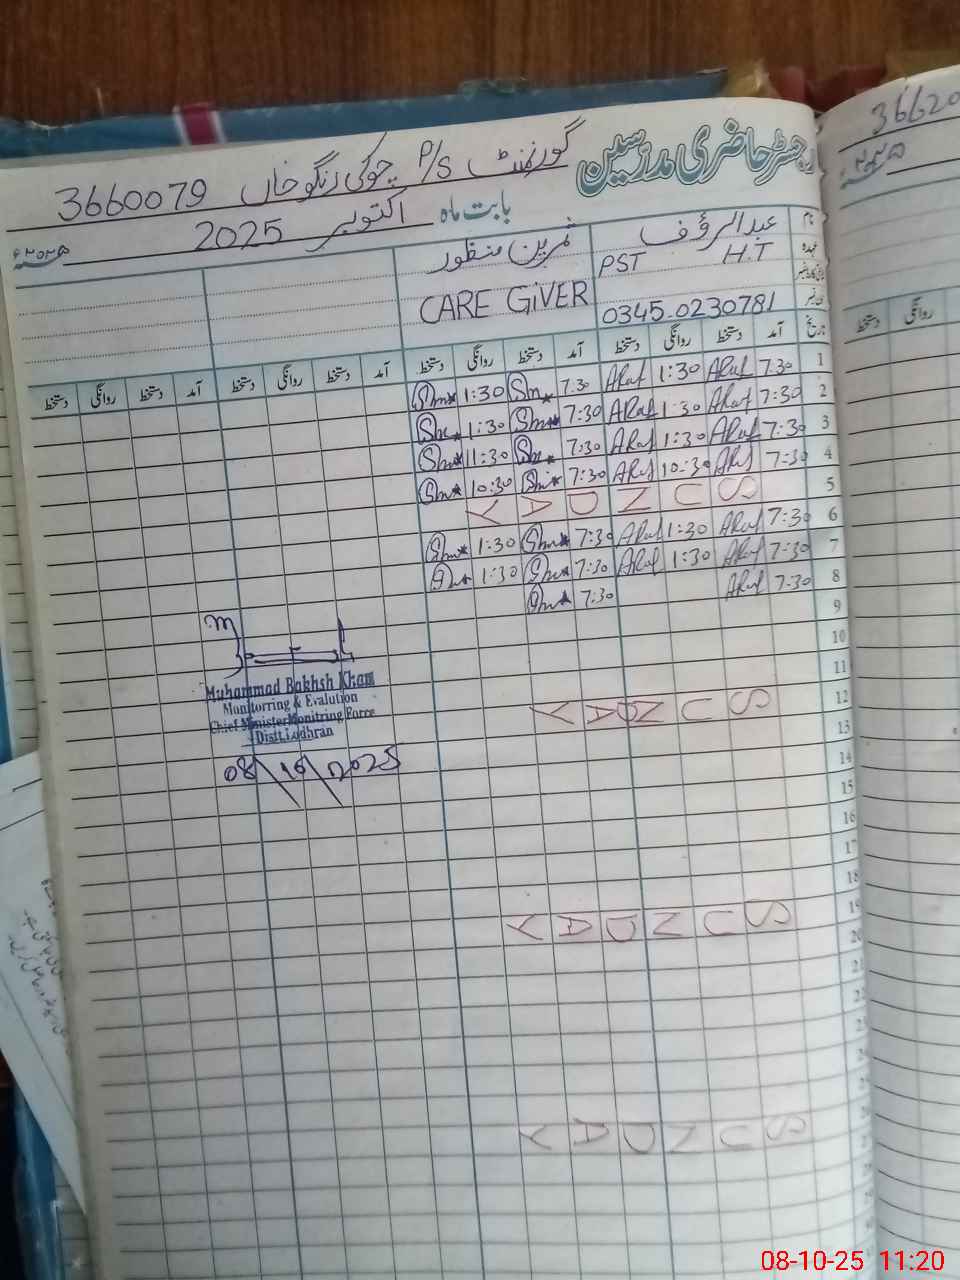 رجسٹر حاضری مدرسین
گورنمنٹ P/S چوکی رنگو خاں 3660079
بابت ماہ اکتوبر 2025 ۲۰۲۵ء
نام عبدالرؤف ثمرین منظور
عہدہ PST H.T
CARE GiVER
0345-0230781
تاریخ آمد دستخط روانگی دستخط آمد دستخط روانگی دستخط آمد دستخط روانگی دستخط آمد دستخط روانگی دستخط
1 7:30 ARaf 1:30 ARaf 7:30 Sm 1:30 Sm
2 7:30 ARaf 1:30 ARaf 7:30 Sm 1:30 Sm
3 7:30 ARaf 1:30 ARaf 7:30 Sm 11:30 Sm
4 7:30 ARaf 10:30 ARaf 7:30 Sm 10:30 Sm
5 SUNDAY
6 7:30 ARaf 1:30 ARaf 7:30 Sm 1:30 Sm
7 7:30 ARaf 1:30 ARaf 7:30 Sm 1:30 Sm
8 7:30 ARaf 7:30 Sm
9
10
11
12 SUNDAY
13
14
15
16
17
18
19 SUNDAY
20
21
22
SUNDAY
Muhammad Bakhsh Khan
Monitorring & Evalution
Chief Minister Monitring Force
Distt. Lodhran
08/10/2025
36620
۲۰۲۵ء
روانگی دستخط
08-10-25 11:20